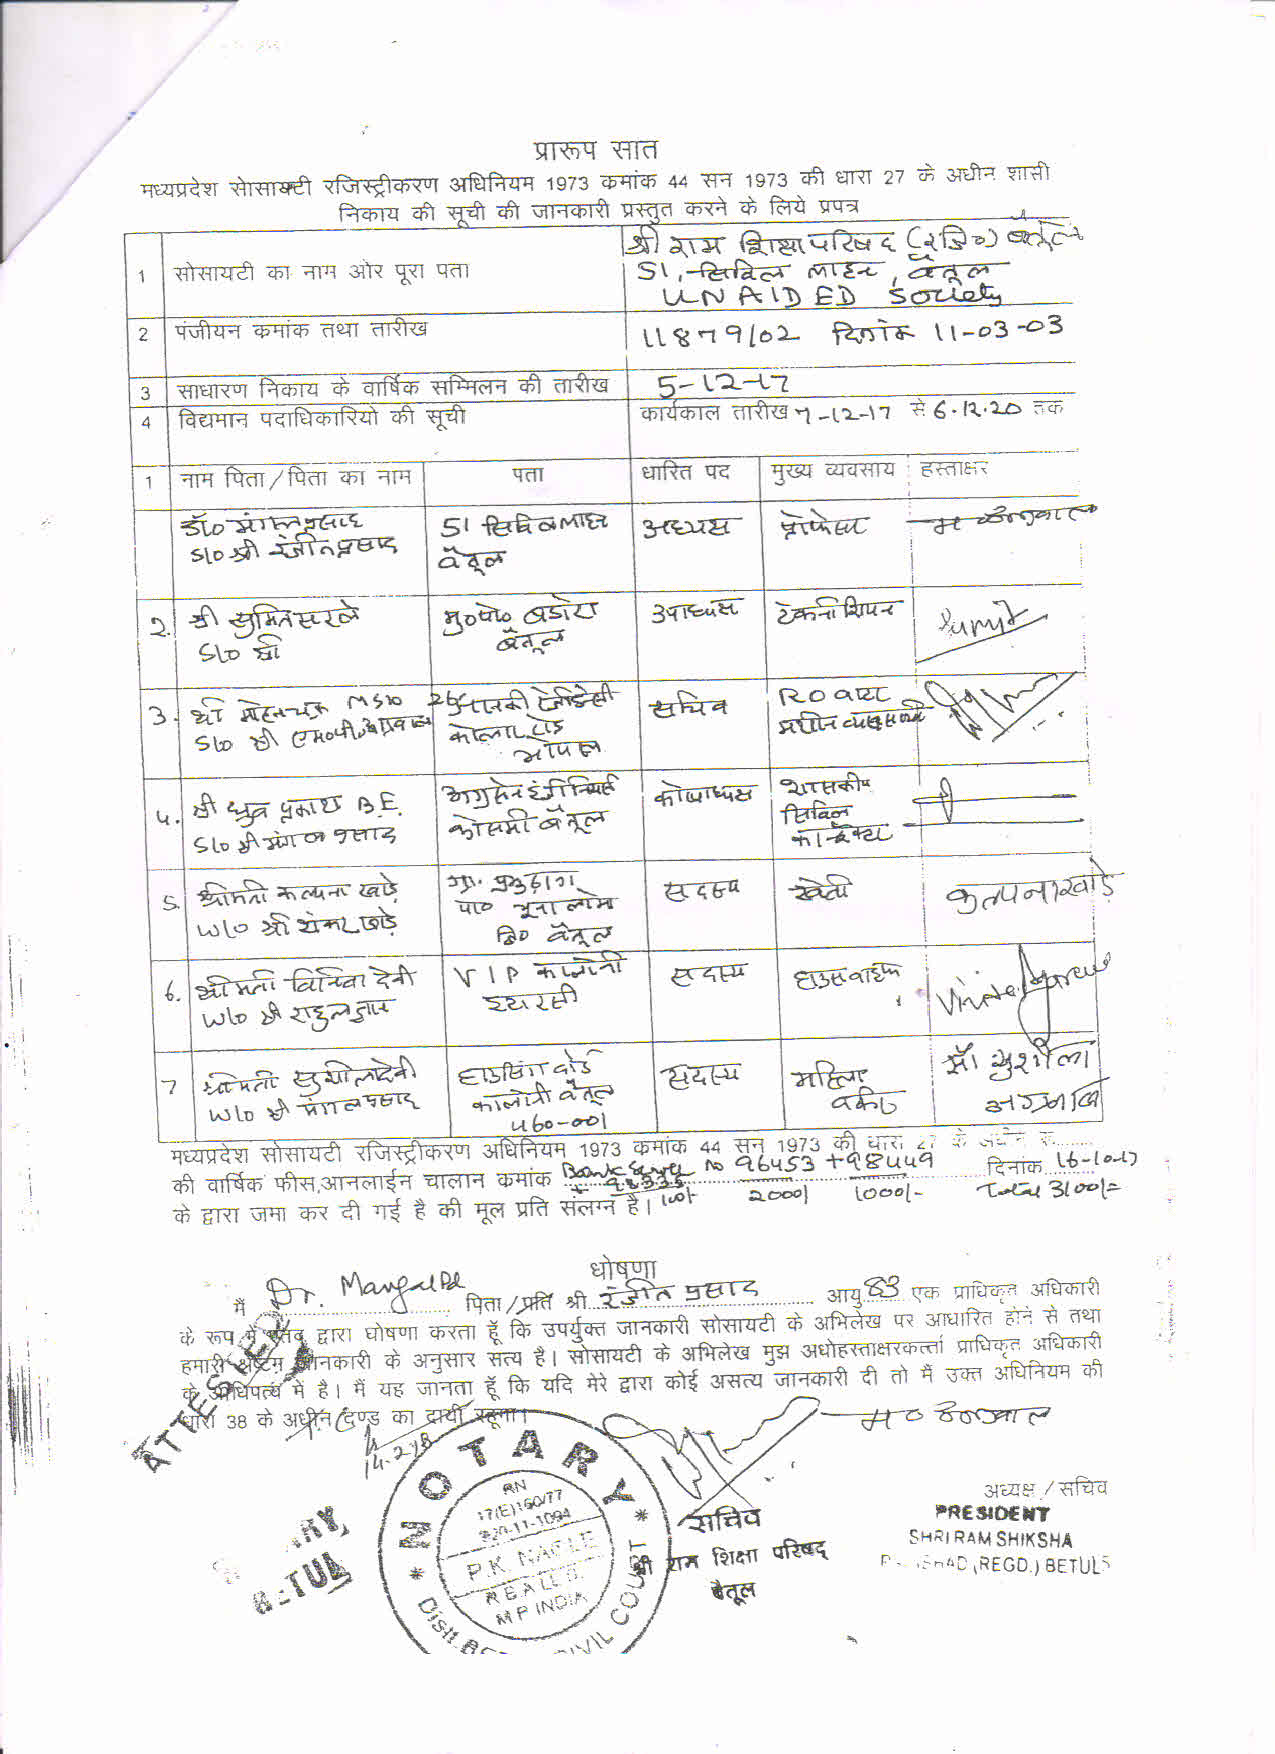 प्रारूप सात
मध्यप्रदेश सोसायटी रजिस्ट्रीकरण अधिनियम 1973 कमांक 44 सन 1973 की धारा 27 के अधीन शासी
निकाय की सूची की जानकारी प्रस्तुत करने के लिये प्रपत्र
1 सोसायटी का नाम और पूरा पता श्री राम शिक्षा परिषद (रजि०) बैतूल
51, सिविल लाइन, बैतूल
UNAIDED Society
2 पंजीयन कमांक तथा तारीख 11879/02 दिनांक 11-03-03
3 साधारण निकाय के वार्षिक सम्मिलन की तारीख 5-12-17
4 विद्यमान पदाधिकारियो की सूची कार्यकाल तारीख 7-12-17 से 6.12.20 तक
1 नाम पिता/पिता का नाम पता धारित पद मुख्य व्यवसाय हस्ताक्षर
डॉ० मंगलप्रसाद 51 सिविल लाइन अध्यक्ष प्रोफेसर
S/o श्री रंजीतप्रसाद बैतूल
2. श्री सुमित सरले मु०पो० बडोरा उपाध्यक्ष टेक्नीशियन Sumit
S/o श्री बैतूल
3. श्री मोहनचन्द्र जानकी रेजीडेंसी सचिव RO वाटर
S/o श्री एम०पी० अग्रवाल कोलार रोड मशीन व्यवसायी
भोपाल
4. श्री ध्रुव प्रकाश B.E. अग्रसेन इंजीनियर्स कोषाध्यक्ष शासकीय
S/o श्री मंगल प्रसाद कोसमी बैतूल सिविल
कान्ट्रेक्टर
5. श्रीमती कल्पना खाड़े सदस्य खेती कल्पना खाड़े
W/o श्री शंकर खाड़े पो०
जि० बैतूल
6. श्रीमती विनिता देवी VIP कालोनी सदस्य हाउसवाइफ
W/o श्री राहुल इटारसी
7 श्रीमती सुशीला देवी हाउसिंग बोर्ड सदस्य महिला सौ. सुशीला
W/o श्री मंगलप्रसाद कालोनी बैतूल वर्कर अग्रवाल
460-001
मध्यप्रदेश सोसायटी रजिस्ट्रीकरण अधिनियम 1973 कमांक 44 सन 1973 की धारा 27 के अधीन
की वार्षिक फीस,आनलाईन चालान कमांक Bank No 96453 + 98449 दिनांक 16-10-17
के द्वारा जमा कर दी गई है की मूल प्रति संलग्न है। 100/- 2000/ 1000/- Total 3100/=
घोषणा
मैं Dr. Mangal Pd पिता/प्रति श्री रंजीत प्रसाद आयु 83 एक प्राधिकृत अधिकारी
के रूप में एतद् द्वारा घोषणा करता हूँ कि उपर्युक्त जानकारी सोसायटी के अभिलेख पर आधारित होने से तथा
हमारी श्रेष्टम जानकारी के अनुसार सत्य है। सोसायटी के अभिलेख मुझ अधोहस्ताक्षरकर्त्ता प्राधिकृत अधिकारी
के आधिपत्य में है। मैं यह जानता हूँ कि यदि मेरे द्वारा कोई असत्य जानकारी दी तो मैं उक्त अधिनियम की
धारा 38 के अधीन दण्ड का दायी रहूंगा।
ATTESTED
NOTARY
RN
17(E)160/77
P.K. NAGLE
M P INDIA
CIVIL COURT
BETUL
सचिव
श्री राम शिक्षा परिषद
बैतूल
अध्यक्ष / सचिव
PRESIDENT
SHRI RAM SHIKSHA
(REGD.) BETULS